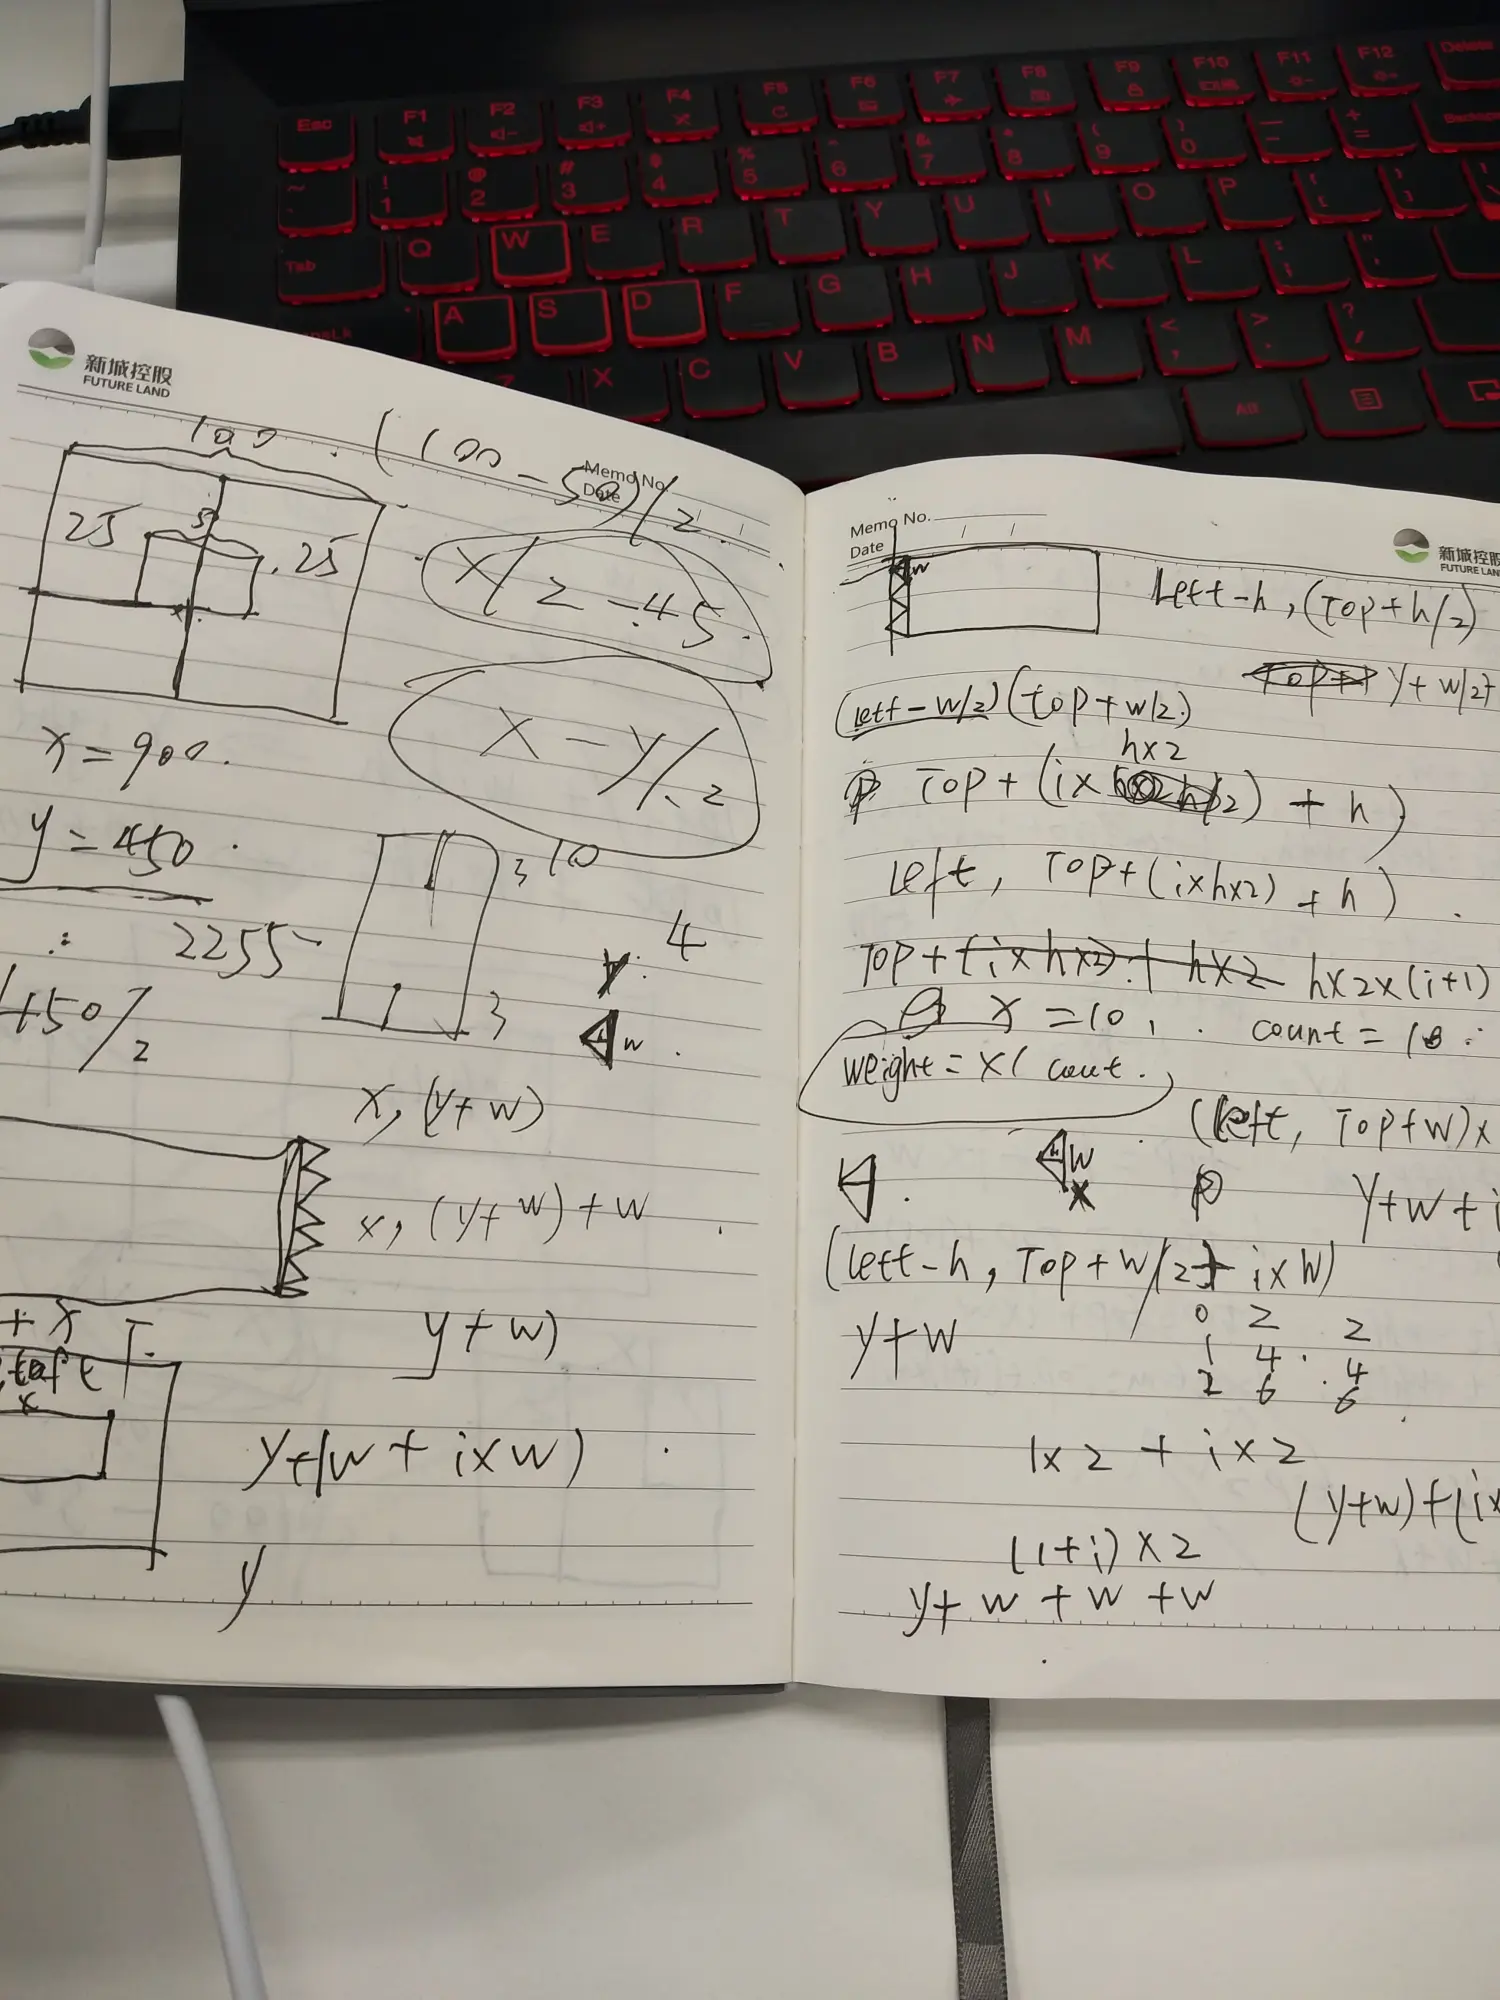 Esc F1 F2 F3 F4 F5 F6 F7 F8 F9 F10 F11 F12 Delete
~ ! 1 @ 2 # 3 $ 4 % 5 ^ 6 & 7 * 8 ( 9 ) 0 — - + = Backspa
Tab Q W E R T Y U I O P { [ } ]
A S D F G H J K L : ; " '
Z X C V B N M < , > . ? /
Alt
新城控股
FUTURE LAND
Memo No.
Date
100
(100-50)/2
25
25
x/2-45
x-y/2
x=900.
y=450
∴ 2255
+50/2
3
10
3
4
Y
h w
x, (y+w)
x, (y+w)+w
y+w)
+x
x
y+(w+ixw)
y
Memo No.
Date
新城控股
FUTURE LAN
w
Left-h, (Top+h/2)
y+w/2+
(Left-w/2)(Top+w/2.)
hx2
Top+(ix +h)
Left, Top+(ixhx2)+h)
Top+(ixhx2)+hx2 hx2x(i+1)
x=10,
count=10
weight=x/cout.
(Left, Top+w)x
h w
x
p
y+w+i
(Left-h, Top+w/2+ixw)
y+w
0 2 2
1 4 4
2 6 6
1x2+ix2
(y+w)+(ix
(1+i)x2
y+w+w+w